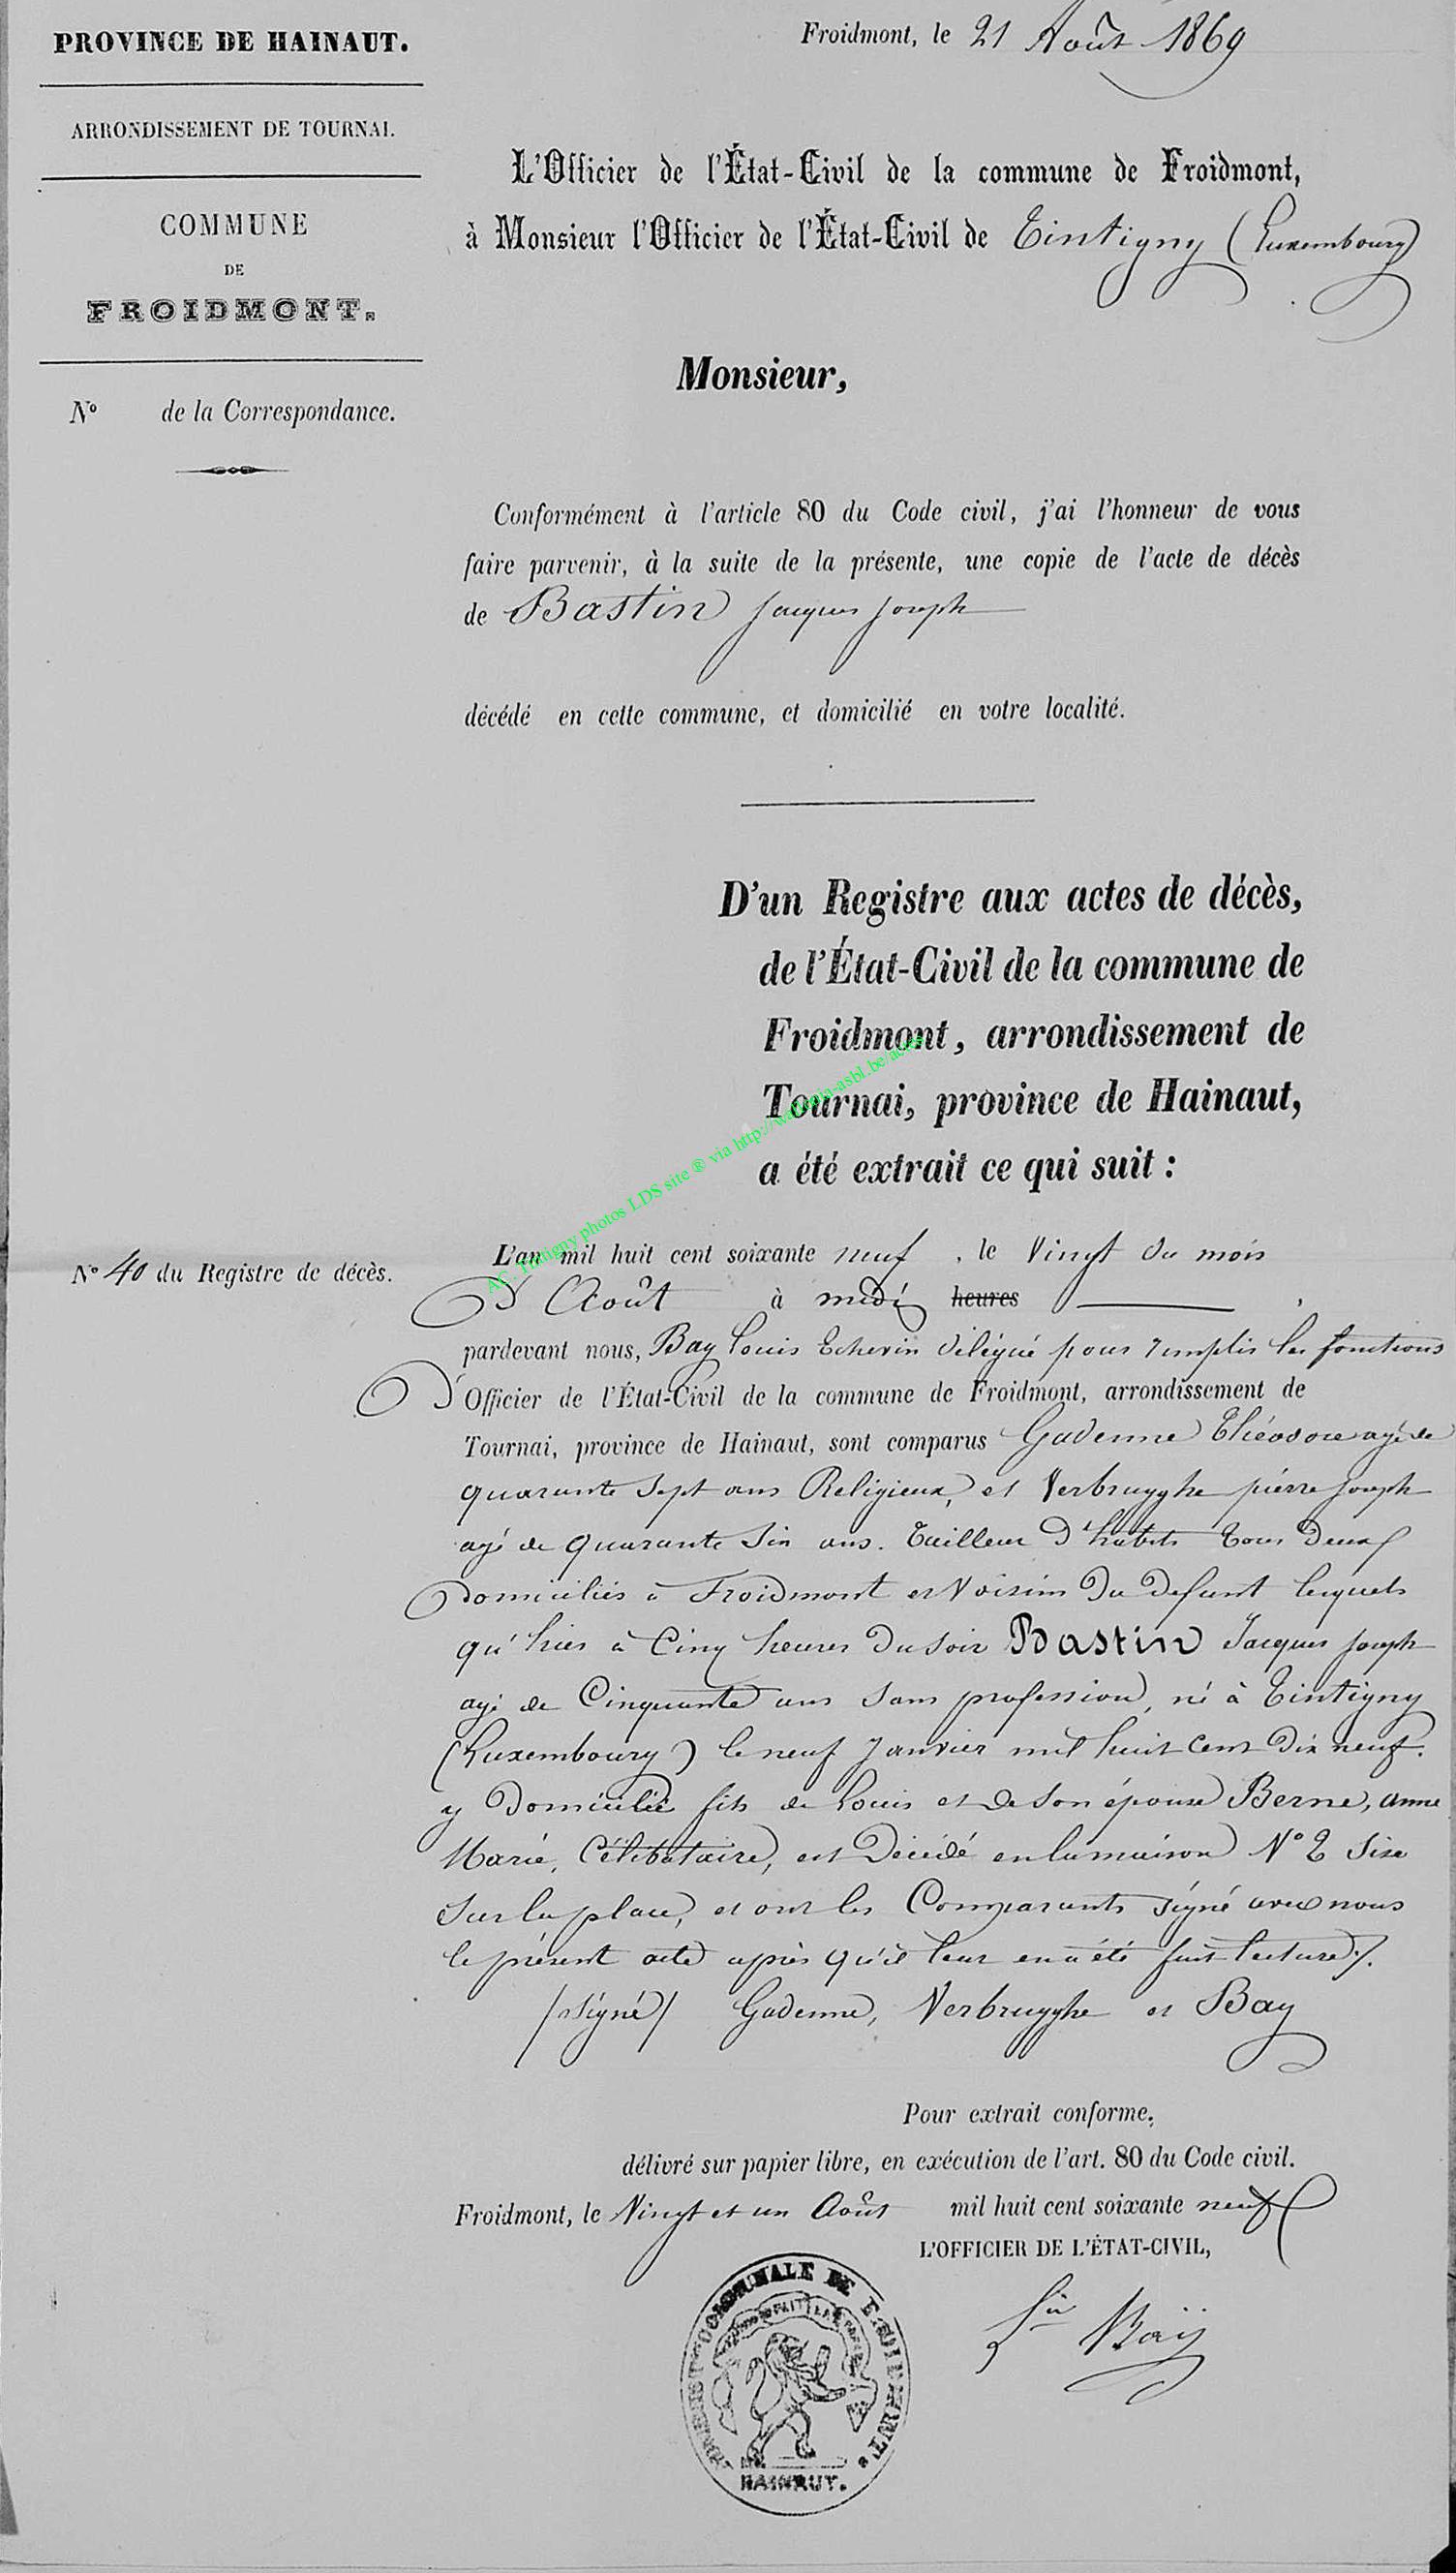 PROVINCE DE HAINAUT.
ARRONDISSEMENT DE TOURNAI.
COMMUNE
DE
FROIDMONT.
N° de la Correspondance.
Froidmont, le 21 Août 1869
L'Officier de l'État-Civil de la commune de Froidmont,
à Monsieur l'Officier de l'État-Civil de Tintigny (Luxembourg)
Monsieur,
Conformément à l'article 80 du Code civil, j'ai l'honneur de vous
faire parvenir, à la suite de la présente, une copie de l'acte de décès
de Bastin Jacques Joseph
décédé en cette commune, et domicilié en votre localité.
D'un Registre aux actes de décès,
de l'État-Civil de la commune de
Froidmont, arrondissement de
Tournai, province de Hainaut,
a été extrait ce qui suit :
AC. Tintigny photos LDS site ® via http://wallonia-asbl.be/actes
N° 40 du Registre de décès.
L'an mil huit cent soixante neuf, le Vingt du mois
D'Août à midi heures
pardevant nous, Bay Louis Echevin délégué pour remplir les fonctions
D'Officier de l'État-Civil de la commune de Froidmont, arrondissement de
Tournai, province de Hainaut, sont comparus Gadenne Théodore agé de
quarante sept ans Religieux, et Verbrugghe pierre Joseph
agé de quarante Six ans. Tailleur D'habits Tous Deux
Domiciliés à Froidmont et Voisins Du Defunt lequels
qu'hier à Cinq heures Du Soir Bastin Jacques Joseph
agé de Cinquante ans Sans profession, né à Tintigny
(Luxembourg) le neuf Janvier mil huit Cent Dix neuf.
y Domicilié fils de Louis et De Son épouse Berne, anne
Marie, Célibataire, est Décédé en la maison N° 2 Sise
Sur la place, et ont les Comparants Signé avec nous
le présent acte après qu'il leur en a été fait lecture ./.
/Signé/ Gadenne, Verbrugghe et Bay
Pour extrait conforme,
délivré sur papier libre, en exécution de l'art. 80 du Code civil.
Froidmont, le Vingt et un Août mil huit cent soixante neuf
L'OFFICIER DE L'ÉTAT-CIVIL,
Ls Baÿ
COMMUNALE DE FROIDMONT
HAINAUT.